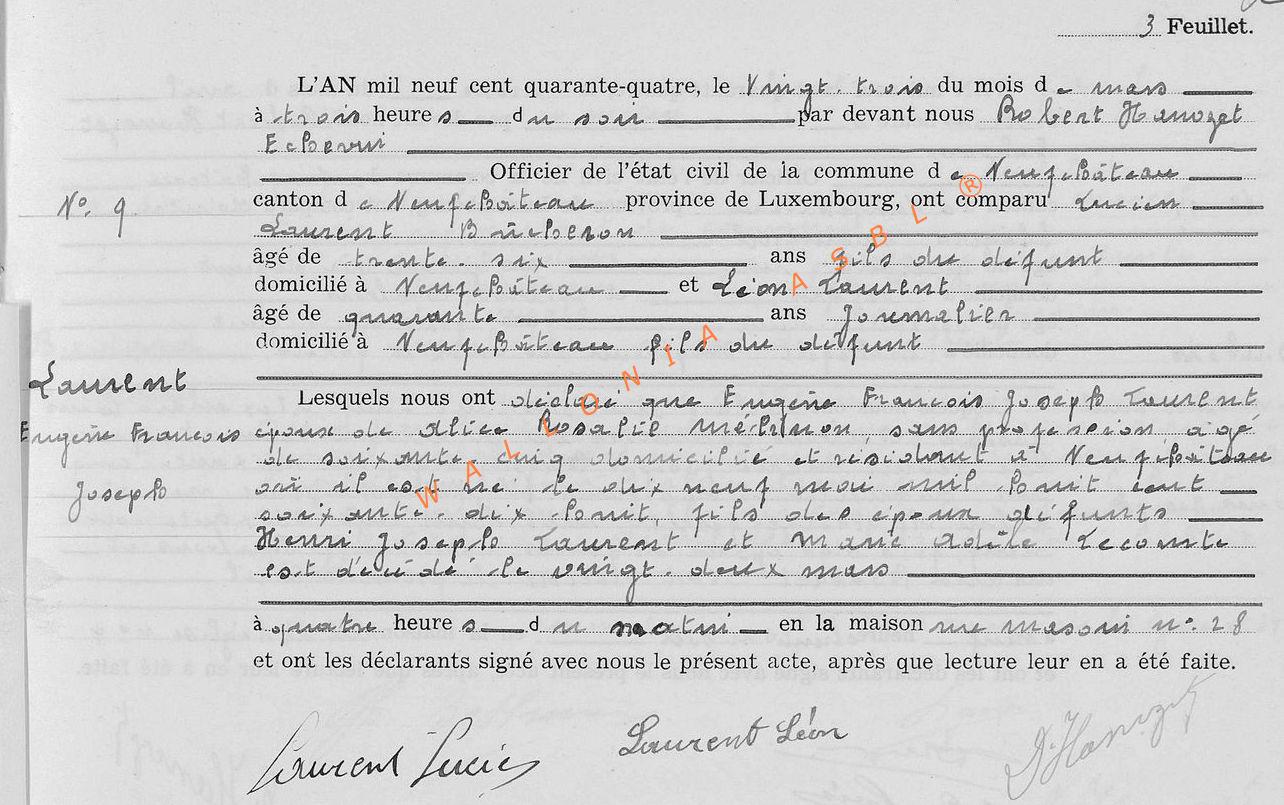 3 Feuillet.
L'AN mil neuf cent quarante-quatre, le Vingt-trois du mois de mars
à trois heures du soir par devant nous Robert Hanozet
Echevin
Officier de l'état civil de la commune de Neufchâteau
N°. 9
canton de Neufchâteau province de Luxembourg, ont comparu Lucien
Laurent Bûcheron
âgé de trente-six ans fils du défunt
domicilié à Neufchâteau et Léon Laurent
âgé de quarante ans Journalier
domicilié à Neufchâteau fils du défunt
Laurent
Eugène François
Joseph
Lesquels nous ont déclaré que Eugène François Joseph Laurent
époux de Alice Rosalie Mélinon, sans profession, âgé
de soixante-cinq domicilié et résidant à Neufchâteau
où il est né le dix neuf mai mil huit cent
soixante-dix huit, fils des époux défunts
Henri Joseph Laurent et Marie Adèle Lecomte
est décédé le vingt-deux mars
à quatre heures du matin en la maison rue
n°. 28
et ont les déclarants signé avec nous le présent acte, après que lecture leur en a été faite.
Laurent Lucien
Laurent Léon
Hanozet
WALLONIA ASBL ®